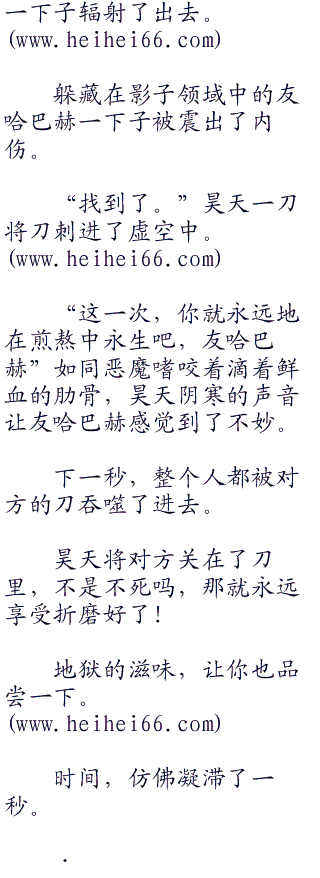 一下子辐射了出去。
(www.heihei66.com)
躲藏在影子领域中的友
哈巴赫一下子被震出了内
伤。
“找到了。”昊天一刀
将刀刺进了虚空中。
(www.heihei66.com)
“这一次，你就永远地
在煎熬中永生吧，友哈巴
赫”如同恶魔嗜咬着滴着鲜
血的肋骨，昊天阴寒的声音
让友哈巴赫感觉到了不妙。
下一秒，整个人都被对
方的刀吞噬了进去。
昊天将对方关在了刀
里，不是不死吗，那就永远
享受折磨好了！
地狱的滋味，让你也品
尝一下。
(www.heihei66.com)
时间，仿佛凝滞了一
秒。
.